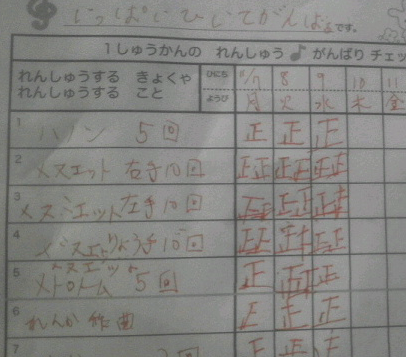 いっぱいひいてがんばるです。
1しゅうかんの れんしゅう♪がんばりチェッ
れんしゅうする きょくや
れんしゅうする こと
ひにち 11/7 8 9 10 11
ようび 月 火 水 木 金
1 ハノン 5回 正 正 正
2 メヌエット 右手10回 正正 正正 正正
3 メヌエット左手10回 正正 正正 正正
4 メヌエットりょう手10回 正正 正正 正正
5 メヌエット
メトロノーム 5回 正 正正
6 れんだ 正 正 正
7 正 正 正